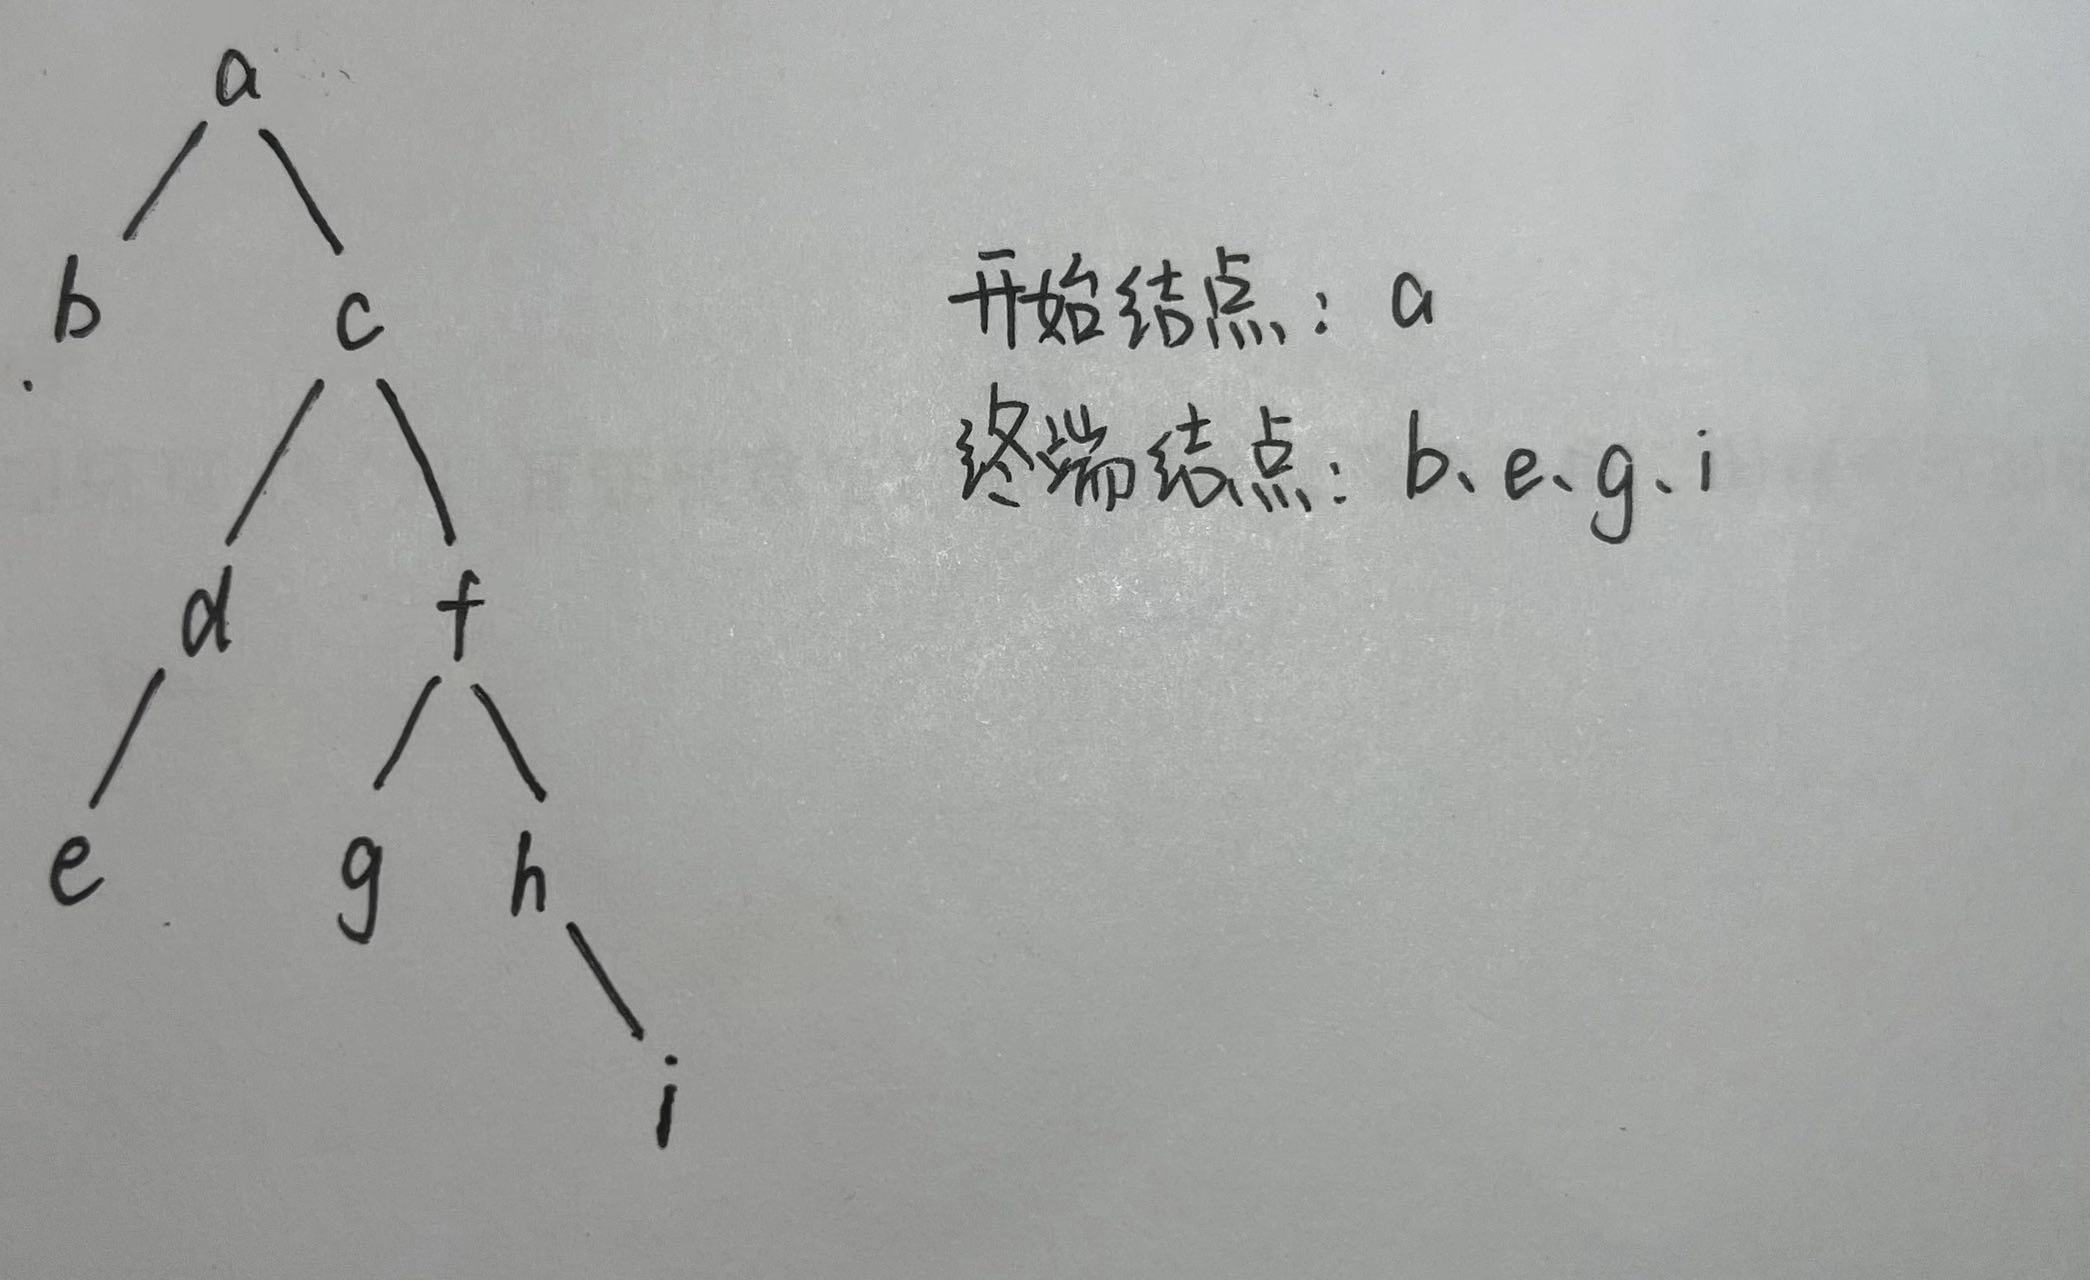 a
b c
d f
e g h
i
开始结点：a
终端结点：b、e、g、i